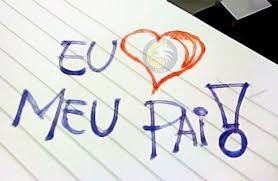 EU
MEU PAi!